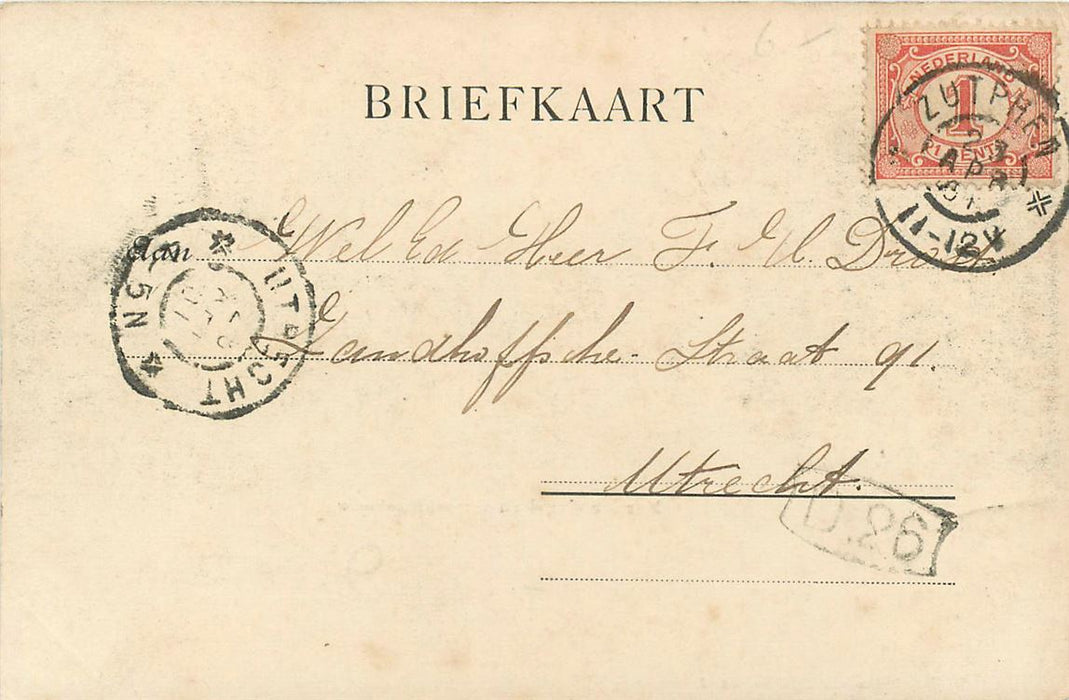 6 –
BRIEFKAART
NEDERLAND
1
CENT
ZUTPHEN
APR
11-12V
aan Wel Ed Heer F. U.
Zandhoffsche Straat 91.
Utrecht.
UTRECHT
5N
D.26